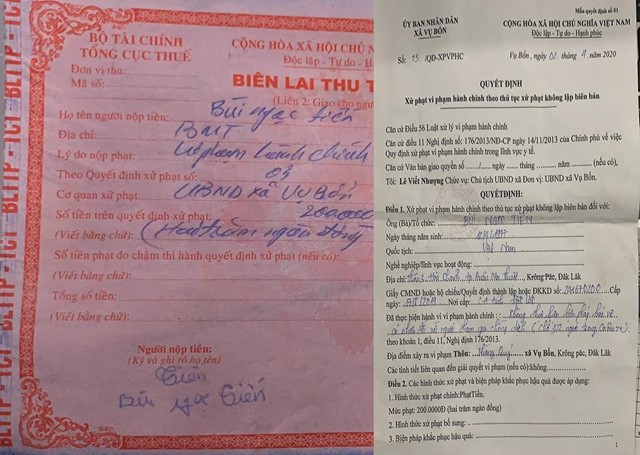 BLTTP - TCT BLTTP - TCT BLTTP - TCT
BỘ TÀI CHÍNH
TỔNG CỤC THUẾ
Đơn vị thu:
Mã số:
CỘNG HÒA XÃ HỘI CHỦ NGH
Độc lập - Tự do - Hạnh
BIÊN LAI THU T
(Liên 2: Giao cho người
Họ tên người nộp tiền: Bùi Ngọc Tiến
Địa chỉ: BMT
Lý do nộp phạt: Vi phạm hành chính
Theo Quyết định xử phạt số: 03
Cơ quan xử phạt: UBND xã Vụ Bổn
Số tiền trên quyết định xử phạt: 200.000
(Viết bằng chữ): (Hai trăm ngàn đồng
Số tiền phạt do chậm thi hành quyết định xử phạt (nếu có):
(Viết bằng chữ):
Tổng số tiền:
(Viết bằng chữ):
Người nộp tiền:
(Ký và ghi rõ họ tên)
Tiến
Bùi Ngọc Tiến
Mẫu quyết định số 01
ỦY BAN NHÂN DÂN
XÃ VỤ BỔN
CỘNG HÒA XÃ HỘI CHỦ NGHĨA VIỆT NAM
Độc lập - Tự do - Hạnh phúc
Số: 03 /QĐ-XPVPHC
Vụ Bổn, ngày 02 tháng 4 năm 2020
QUYẾT ĐỊNH
Xử phạt vi phạm hành chính theo thủ tục xử phạt không lập biên bản
Căn cứ Điều 56 Luật xử lý vi phạm hành chính
Căn cứ điều 11 Nghị định số: 176/2013/NĐ-CP ngày 14/11/2013 của Chính phủ về việc
Quy định xử phạt vi phạm hành chính trong lĩnh vực y tế.
Căn cứ Văn bản giao quyền số ....../...... ngày ...... tháng ...... năm ......... (nếu có),
Tôi: Lê Viết Nhượng Chức vụ: Chủ tịch UBND xã Đơn vị: UBND xã Vụ Bổn.
QUYẾT ĐỊNH:
Điều 1. Xử phạt vi phạm hành chính theo thủ tục xử phạt không lập biên bản đối với:
Ông (Bà)/Tổ chức: Bùi Ngọc Tiến
Ngày tháng năm sinh:
Quốc tịch: Việt Nam
Nghề nghiệp/lĩnh vực hoạt động:
Địa chỉ: , Krông Păc, Đăk Lăk
Giấy CMND hoặc hộ chiếu/Quyết định thành lập hoặc ĐKKD số Cấp
ngày: Nơi cấp: CA tỉnh Đắk Lắk
Đã thực hiện hành vi vi phạm hành chính : không thực hiện biện pháp bảo vệ
cá nhân đối với người tham gia chống dịch
theo khoản 1, điều 11, Nghị định 176/2013.
Địa điểm xảy ra vi phạm Thôn: xã Vụ Bổn, Krông păc, Đăk Lăk
Các tình tiết liên quan đến giải quyết vi phạm (nếu có):không
Điều 2. Các hình thức xử phạt và biện pháp khắc phục hậu quả được áp dụng:
1. Hình thức xử phạt chính:PhạtTiền.
Mức phạt: 200.000Đ (hai trăm ngàn đồng)
2. Hình thức xử phạt bổ sung:
3. Biện pháp khắc phục hậu quả:
1